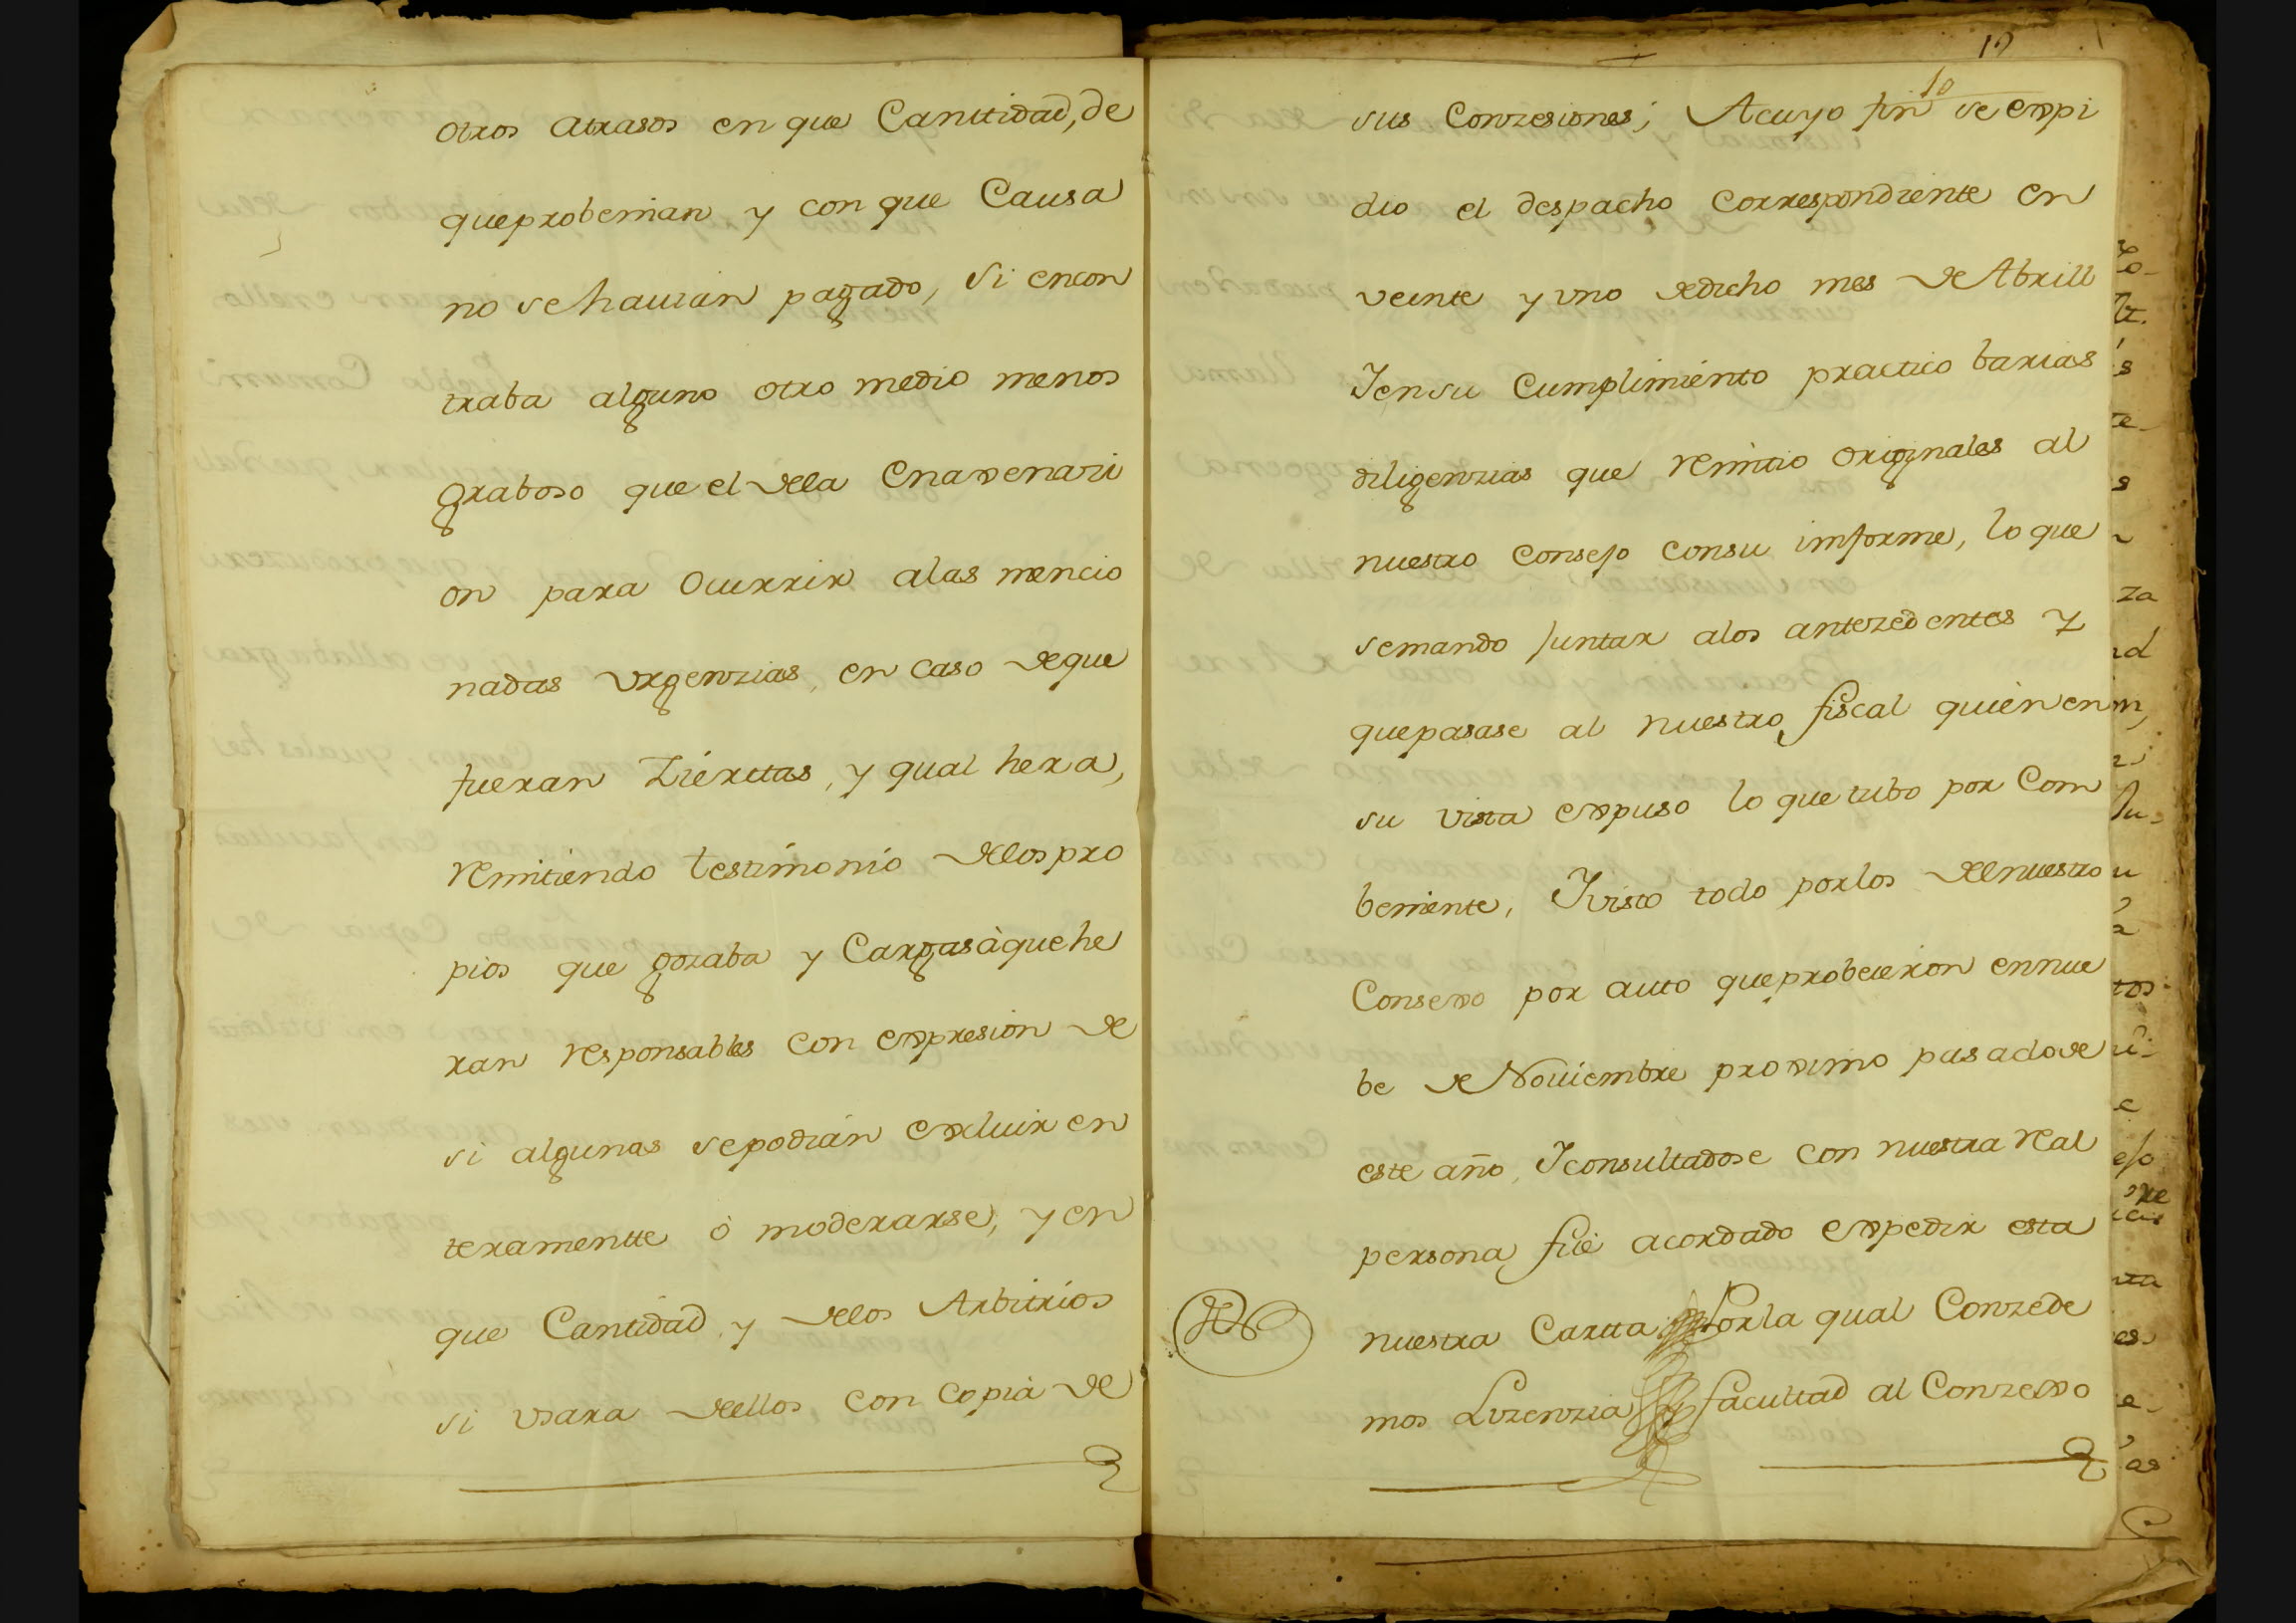 otros atrasos en que Canttidad, de
queprobenian y con que Causa
no sehauian pagado, si encon
traba alguno otro medio menos
graboso que el dela Enaxenazi
on para Ocurrir alas mencio
nadas vrgenzias, en caso deque
fueran Zierttas, y qual hera,
remitiendo testimonio delos pro
pios que gozaba y Cargas à que he
ran responsables con expresion de
si algunas sepodian excluir en
teramentte ò moderarse, y en
que Cantidad, y delos Arbitrios
si vsara dellos, con Copia de
10
10
sus Conzesiones; Acuyo fin se expi
dio el despacho Correspondiente en
veinte y vno dedicho mes de Abrill
Yensu Cumplimiento practico barias
diligenzias que remitio originales al
nuestro Consejo consu informe, lo que
semando Juntar alos antezedentes y
quepasase al nuestro fiscal quien en
su vista expuso lo que tubo por Com
beniente, Yvisto todo porlos delnuestro
Consexo por auto queprobeieron ennue
be de Nouiembre proximo pasado de
este año, Yconsultadose con nuestra real
persona fué acordado expedir esta
nuestra Cartta Porla qual Conzede
mos Lizenzia y facultad al Conzexo